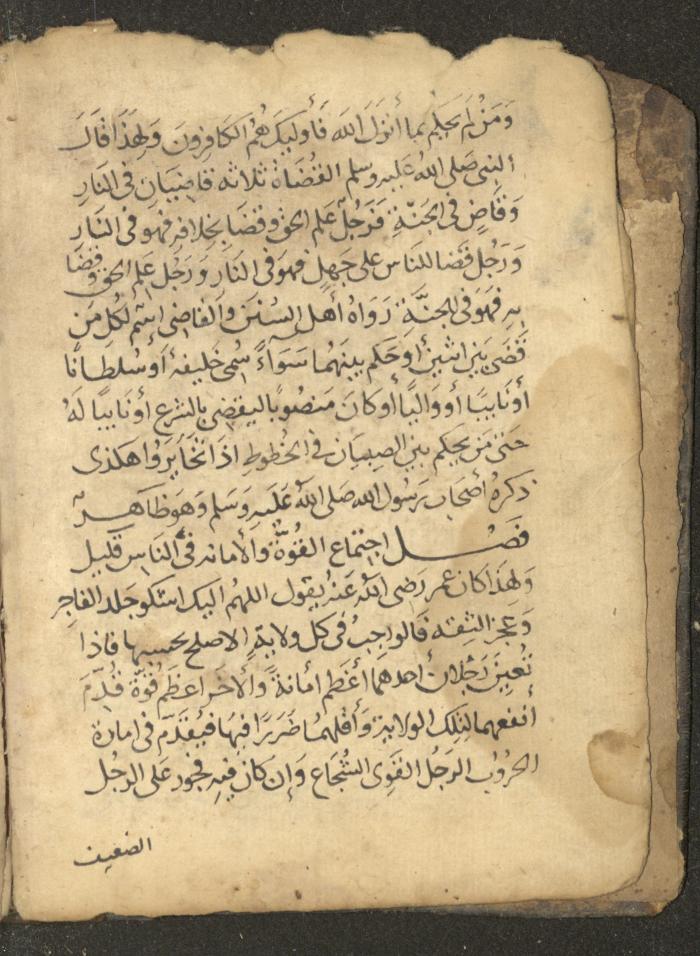 وَمَنْ لَمْ يَحكِم بما أنزَلَ الله فَأُولَيكَ هُمُ الكَافِرُونَ وَلِهَذَا قَالَ
النبى صَلى اللهُ عَليهِ وسلم القُضَاةُ ثلاثه قاضِيَانِ فى النَارِ
وَقَاضٍ فى الجَنّةِ فَرَجُلٌ عَلم الحق وقضَا بخلافِهِ فهوَ فى النَارِ
وَرَجُل قضَا للنَاسِ على جَهلٍ فهوَ فى النَارِ وَرَجُل عَلِم الحق وقضَا
بهِ فهَوَ فى الجنَّةِ رَوَاهُ أهل السُنَنَ والقاضِى اسم لكُل مَن
قَضَى بَين اثنين أو حَكم بينهُمَا سَوَآءً سُمى خَليفةً أو سُلطانًا
أو نَايبًا أو وَاليًا أو كانَ مَنصُوبًا ليقضِى بالشرع أو نَايبًا لهُ
حَتى مَن يحكم بين الصِبيان فى الخطوطِ اذَا تخَايَرُوا هَكذى
ذكرهُ أصحَاب رَسُول الله صَلى اللهُ عَليهِ وَسَلم وَهوَ ظَاهِرٌ
فَصْل اجتماع القُوّةِ والأمانه فى النَاسِ قليل
وَلهذا كان عُمر رَضِى اللهُ عَنهُ يقول اللهم اليك اشكو جَلد الفاجِر
وَعجز الثِقه فالوَاجبُ فى كل ولايةٍ الاصلح بحسبهَا فاذا
تعُيِنَ رَجُلان أحدهمَا أعظم أمَانةً وَالأخر اعظَم قُوّةً قُدِّمَ
أنفعهما لتِلك الولايةِ وَأقلهمَا ضَرَرًا فيهَا فيُقَدَّم فى امارة
الحُرُوب الرجُل القَوِى الشُجَاع وَإن كان فيهِ فجور عَلى الرجُل
الضعِيف